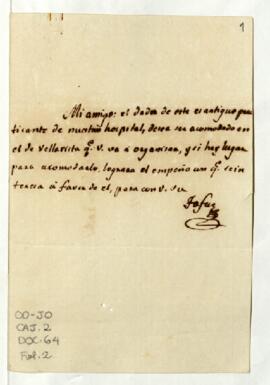 1
Mi amigo: el dador de este es antiguo prac
ticante de nuestro hospital, desea ser acomodado en
el de Vellavista q.e V. va a organizar, y si hay lugar
para acomodarlo, lograra el empeño con q.e se in
teresa á favor de el, para con V. su
OO-JO
CAJ. 2
DOC. 64
Fol. 2